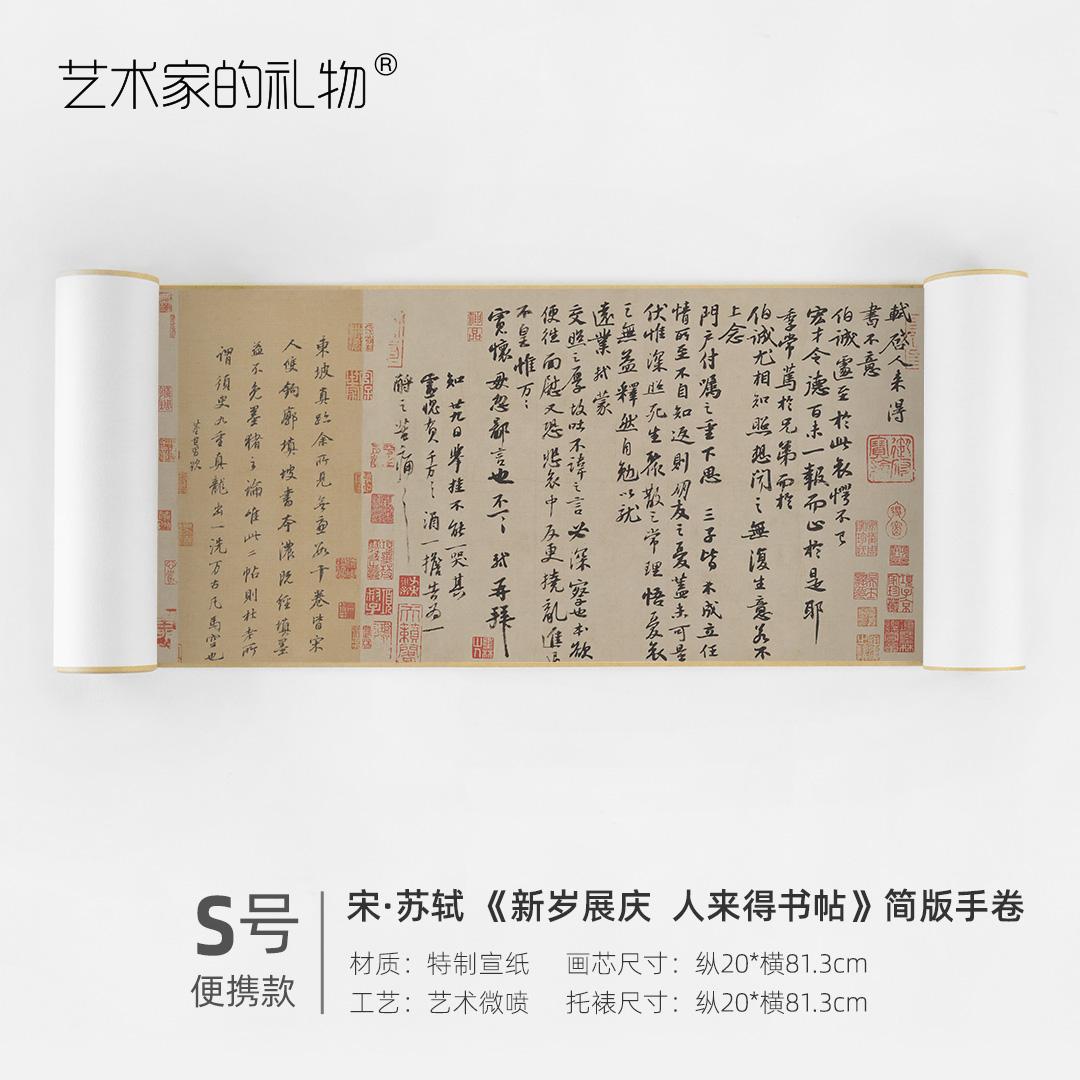 艺术家的礼物®
軾啓人來得
書不意
伯誠遽至於此哀愕不已
宏才令德百未一報而止於是耶
季常篤於兄弟而於
伯誠尤相知照想聞之無復生意若不
上念
門戶付囑之重下思三子皆未成立任
情所至不自知返則朋友之憂蓋未可量
伏惟深照死生聚散之常理悟憂哀
之無益釋然自勉以就
遠業軾蒙
交照之厚故吐不諱之言必深察也本欲
便往面慰又恐悲哀中反更撓亂進退
不皇惟万万
寬懷毋忽鄙言也不一一軾再拜
知廿九日舉挂不能哭其
靈愧負千万千万酒一擔告為一
酹之苦痛
東坡真跡余所見無慮數十卷皆宋
人雙鉤廓填坡書本濃既經填墨
益不免墨豬之論唯此二帖則杜老所
謂須臾九重真龍出一洗万古凡馬空也
董其昌題
S号
便携款
宋·苏轼《新岁展庆 人来得书帖》简版手卷
材质：特制宣纸 画芯尺寸：纵20*横81.3cm
工艺：艺术微喷 托裱尺寸：纵20*横81.3cm